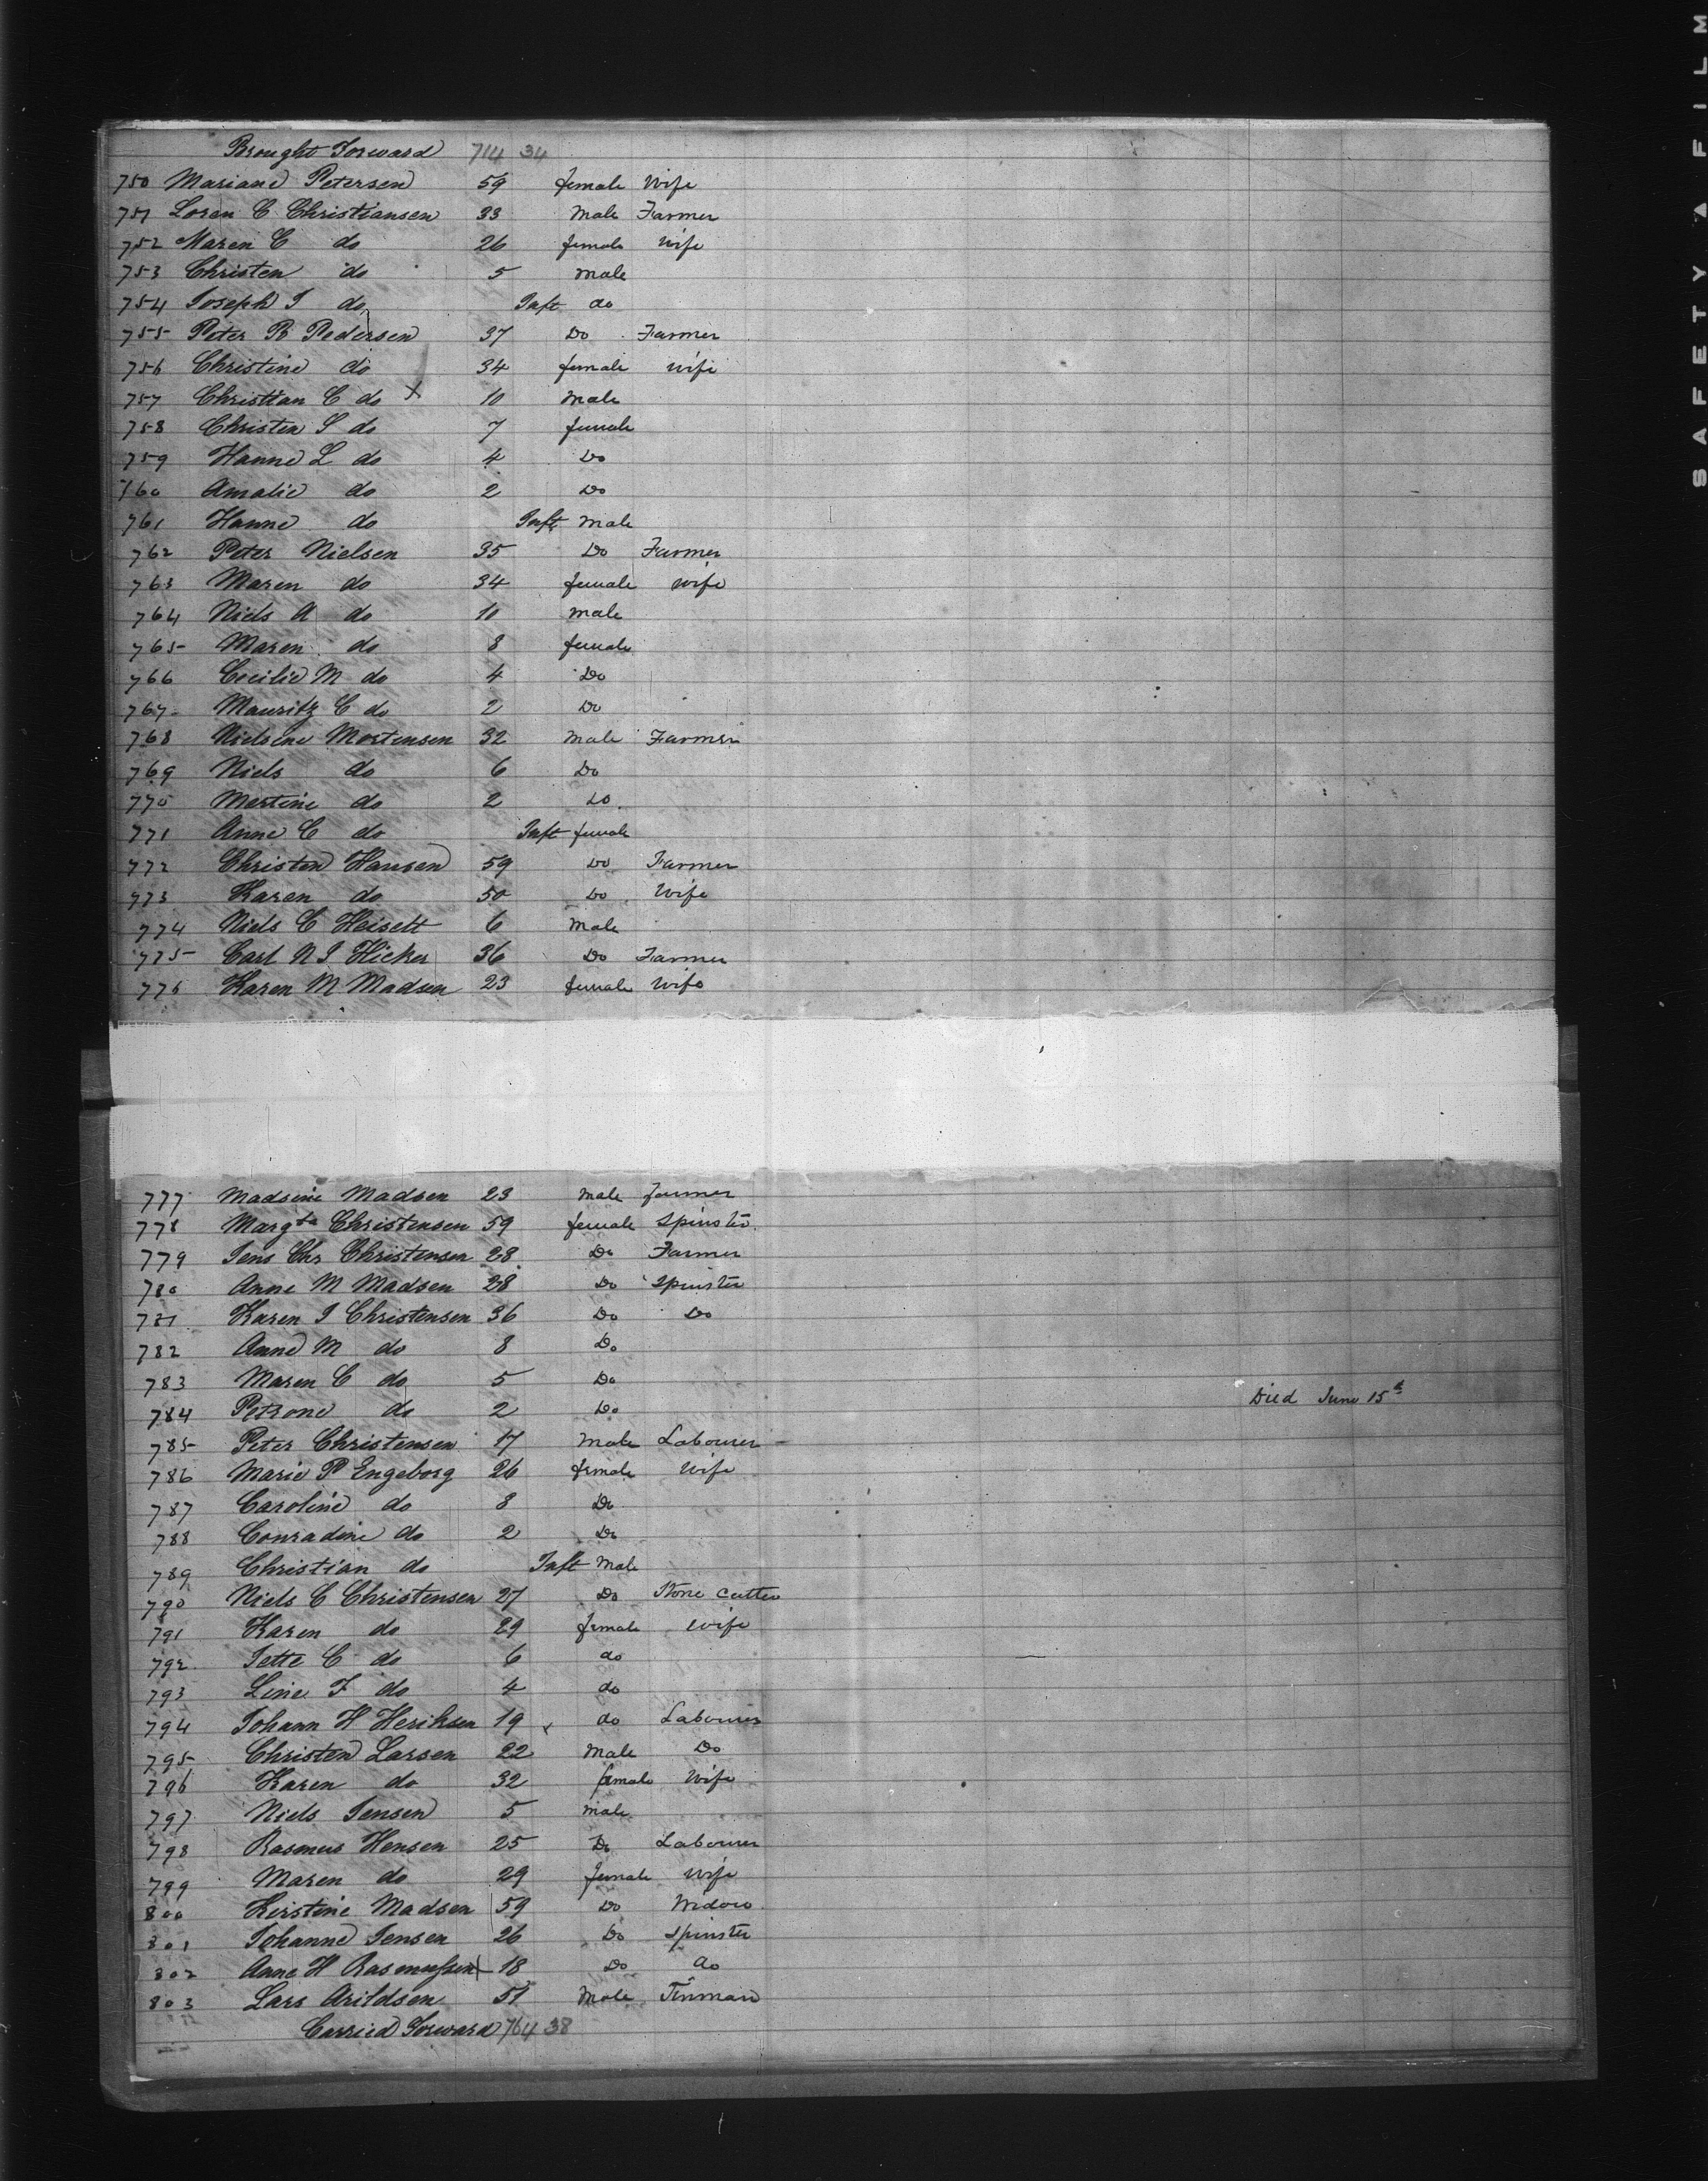 Brought Forward 714 34
750 Mariane Petersen 59 female Wife
751 Loren C Christiansen 33 Male Farmer
752 Maren C do 26 female Wife
753 Christen do 5 Male
754 Joseph J do Inft do
755 Peter R Pedersen 37 Do Farmer
756 Christine do 34 female Wife
757 Christian C do X 10 Male
758 Christen S do 7 female
759 Hanne L do 4 Do
760 Amalie do 2 Do
761 Hanne do Inft Male
762 Peter Nielsen 35 Do Farmer
763 Maren do 34 female Wife
764 Niels A do 10 Male
765 Maren do 8 female
766 Cecilie M do 4 Do
767 Mauritz C do 2 Do
768 Nielsine Mortensen 32 Male Farmer
769 Niels do 6 Do
770 Mertine do 2 Do
771 Anne C do Inft female
772 Christen Hansen 59 Do Farmer
773 Karen do 50 Do Wife
774 Niels C Heisett 6 Male
775 Carl N J Hicker 36 Do Farmer
776 Karen M Madsen 23 female Wife
777 Madsine Madsen 23 Male Farmer
778 Margte Christensen 59 female Spinster
779 Jens Chr Christensen 28 Do Farmer
780 Anne M Madsen 28 Do Spinster
781 Karen J Christensen 36 Do Do
782 Anne M do 8 Do
783 Maren C do 5 Do
784 Petrone do 2 Do Died June 15th
785 Peter Christensen 17 Male Labourer
786 Marie P Engeborg 26 female Wife
787 Caroline do 8 Do
788 Conradine do 2 Do
789 Christian do Inft Male
790 Niels C Christensen 27 Do Stone Cutter
791 Karen do 29 female Wife
792 Jette C do 6 do
793 Line F do 4 do
794 Johann H Heriksen 19 x do Labourer
795 Christen Larsen 22 Male Do
796 Karen do 32 female Wife
797 Niels Jensen 5 Male
798 Rasmus Hensen 25 Do Labourer
799 Maren do 29 female Wife
800 Kirstine Madsen 59 Do Widow
801 Johanne Jensen 26 Do Spinster
802 Anne H Rasmussen 18 Do do
803 Lars Arildsen 51 Male Tinman
Carried Forward 764 38
SAFETY A FILM